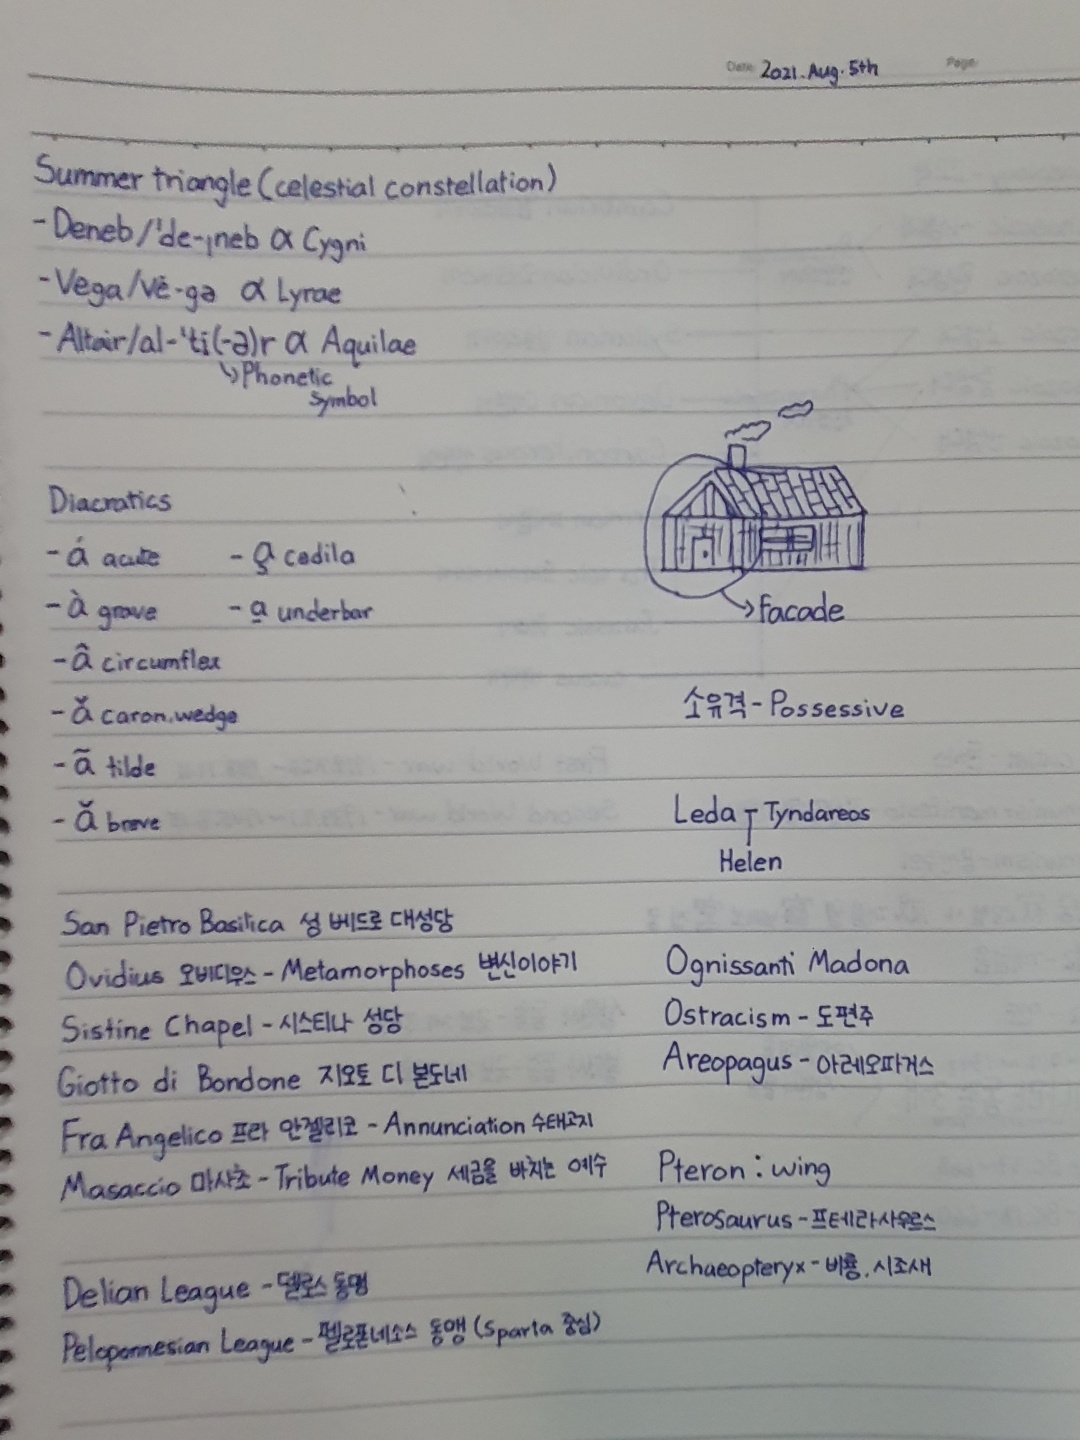 Date 2021. Aug. 5th Page
Summer triangle (celestial constellation)
- Deneb/'de-ˌneb α Cygni
- Vega/vē-gə α Lyrae
- Altair/al-'ti(-ə)r α Aquilae
↳ Phonetic
Symbol
Diacratics
- á acute - a̧ cedila
- à grave - a̲ underbar
- â circumflex
- ǎ caron, wedge
- ã tilde
- ă breve
→ facade
소유격 - Possessive
Leda ┬ Tyndareos
Helen
San Pietro Basilica 성 베드로 대성당
Ovidius 오비디우스 - Metamorphoses 변신이야기
Sistine Chapel - 시스티나 성당
Giotto di Bondone 지오토 디 본도네
Fra Angelico 프라 안젤리코 - Annunciation 수태고지
Masaccio 마사초 - Tribute Money 세금을 바치는 예수
Ognissanti Madona
Ostracism - 도편주
Areopagus - 아레오파거스
Pteron : wing
Pterosaurus - 프테라사우르스
Archaeopteryx - 비룡, 시조새
Delian League - 델로스 동맹
Peloponnesian League - 펠로폰네소스 동맹 (Sparta 중심)